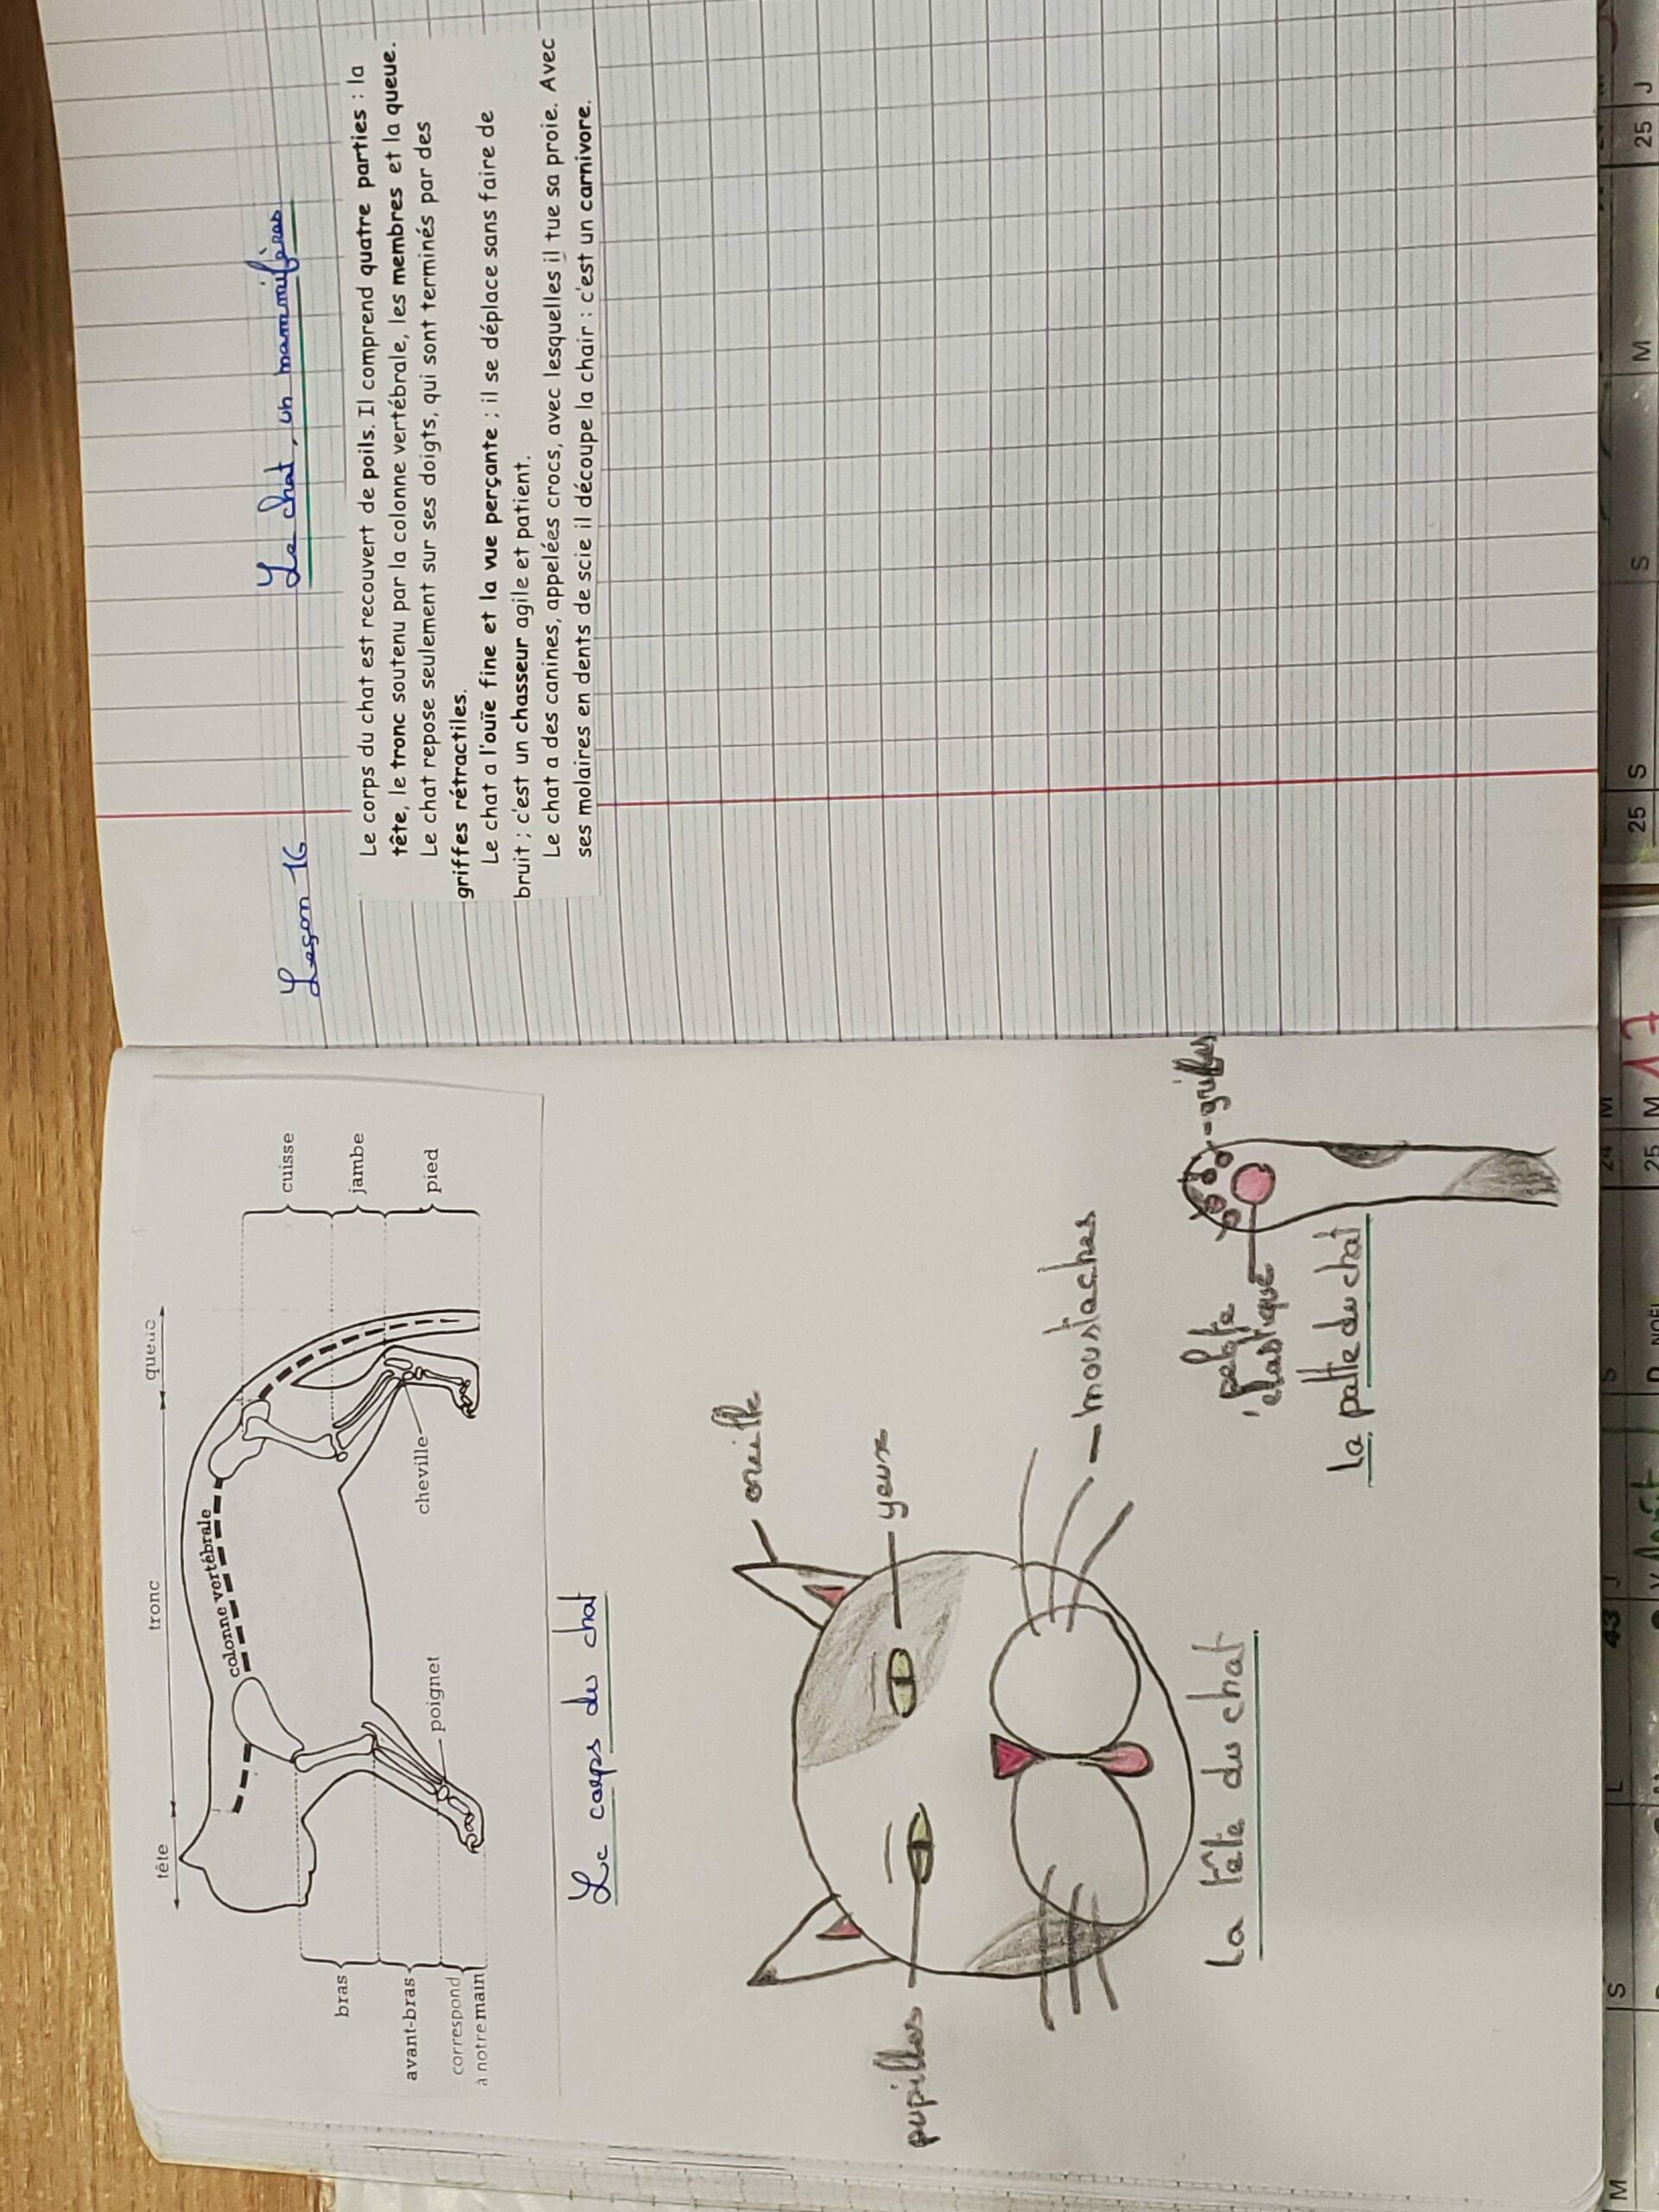 tête
tronc
queue
colonne vertébrale
cuisse
jambe
pied
bras
avant-bras
correspond
à notre main
poignet
cheville
Le corps du chat
oreille
yeux
pupilles
moustaches
La tête du chat
griffes
pelote
élastique
la patte du chat
Leçon 16
Le chat, un mammifères
Le corps du chat est recouvert de poils. Il comprend quatre parties : la
tête, le tronc soutenu par la colonne vertébrale, les membres et la queue.
Le chat repose seulement sur ses doigts, qui sont terminés par des
griffes rétractiles.
Le chat a l'ouïe fine et la vue perçante ; il se déplace sans faire de
bruit ; c'est un chasseur agile et patient.
Le chat a des canines, appelées crocs, avec lesquelles il tue sa proie. Avec
ses molaires en dents de scie il découpe la chair : c'est un carnivore.
M
S
L
43
J
S
24
M
25
M
17
25
S
S
M
25
J